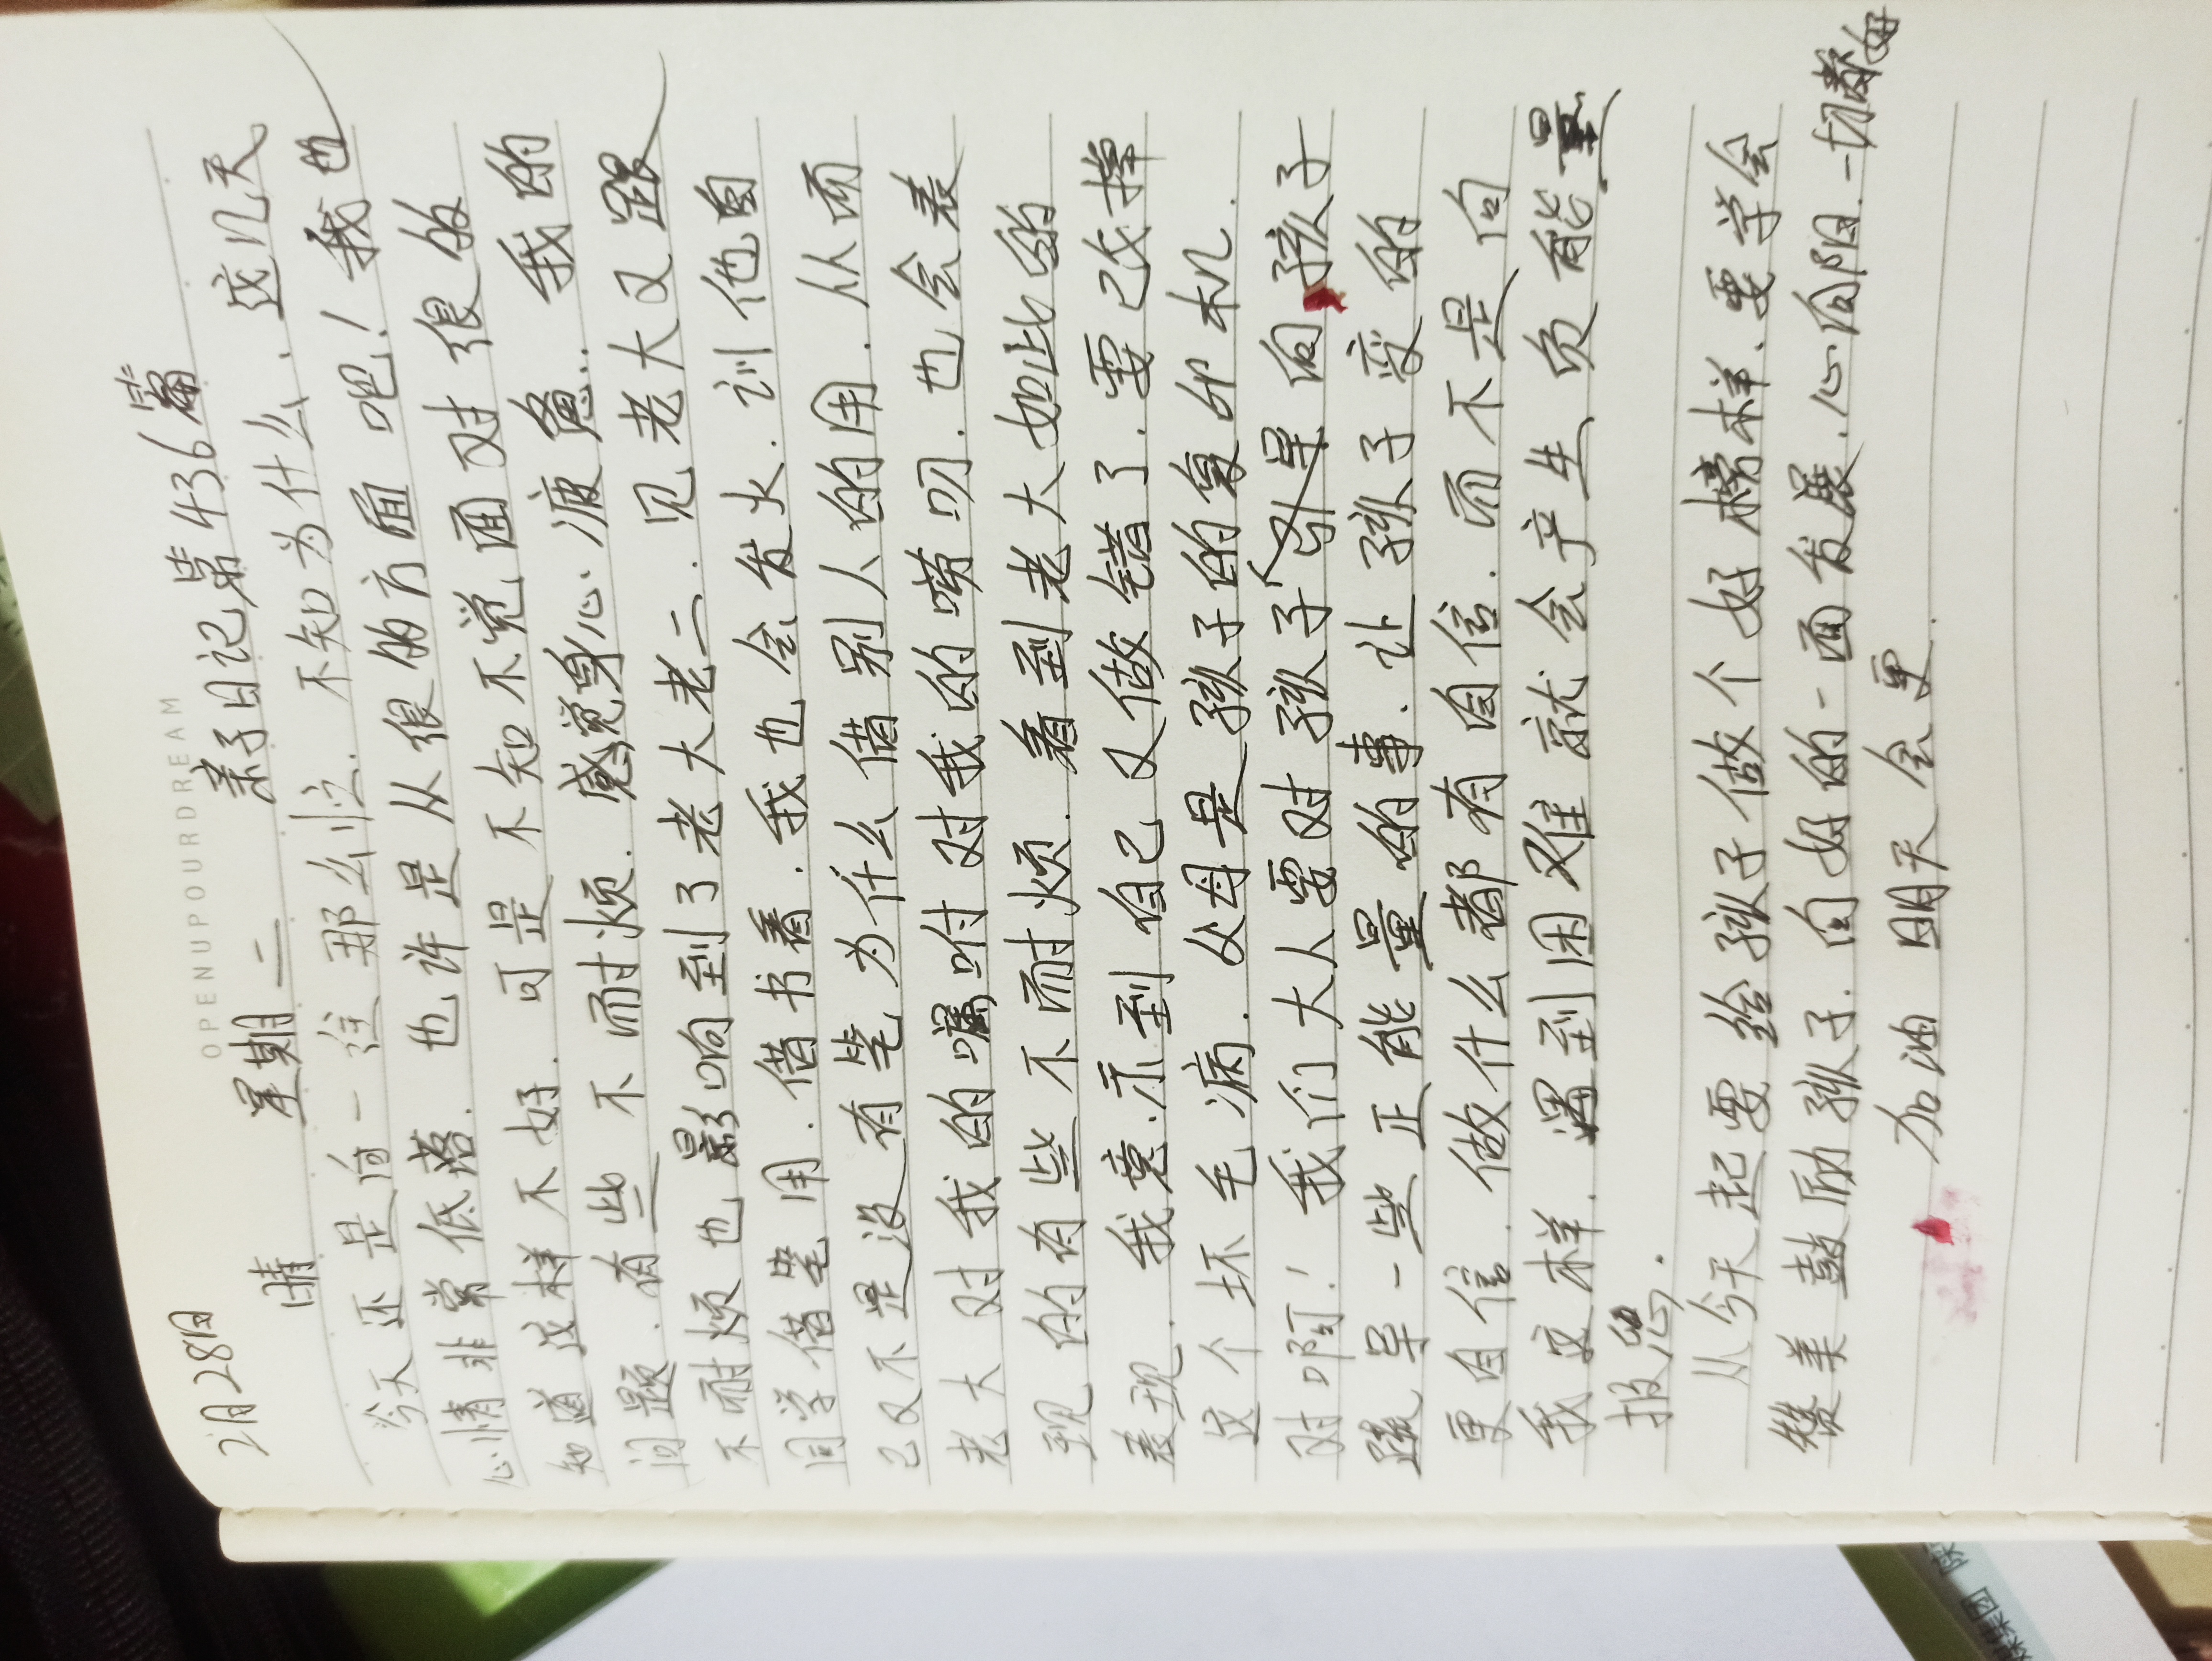 OPENUPOURDREAM
2月28日 星期二 亲子日记第436篇
晴
今天还是自一往那么忙. 不知为什么、这几天
心情非常低落. 也许是从很的方面吧! 我也
知道这样不好. 可是不知不觉面对很多的
问题. 有些不耐烦. 感觉身心疲惫. 我的
不耐烦也影响到了老大老二. 见老大又跟
同学借笔用. 借书看. 我也会发火. 训他自
己又不是没有笔为什么借别人的用. 从而
老大对我的嘱咐对我的唠叨. 也会表
现的有些不耐烦. 看到老大如此的
表现. 我意示到自己又做错了. 要改掉
这个坏毛病. 父母是孩子的复印机.
对啊! 我们大人要对孩子引导向孩子
疏导一些正能量的事. 让孩子变的
更自信. 做什么都有自信. 而不是向
我这样. 遇到困难就会产生负能量
报怨.
从今天起要给孩子做个好榜样. 要学会
赞美鼓励孩子. 向好的一面发展. 心向阳. 一切都好
加油 明天会更